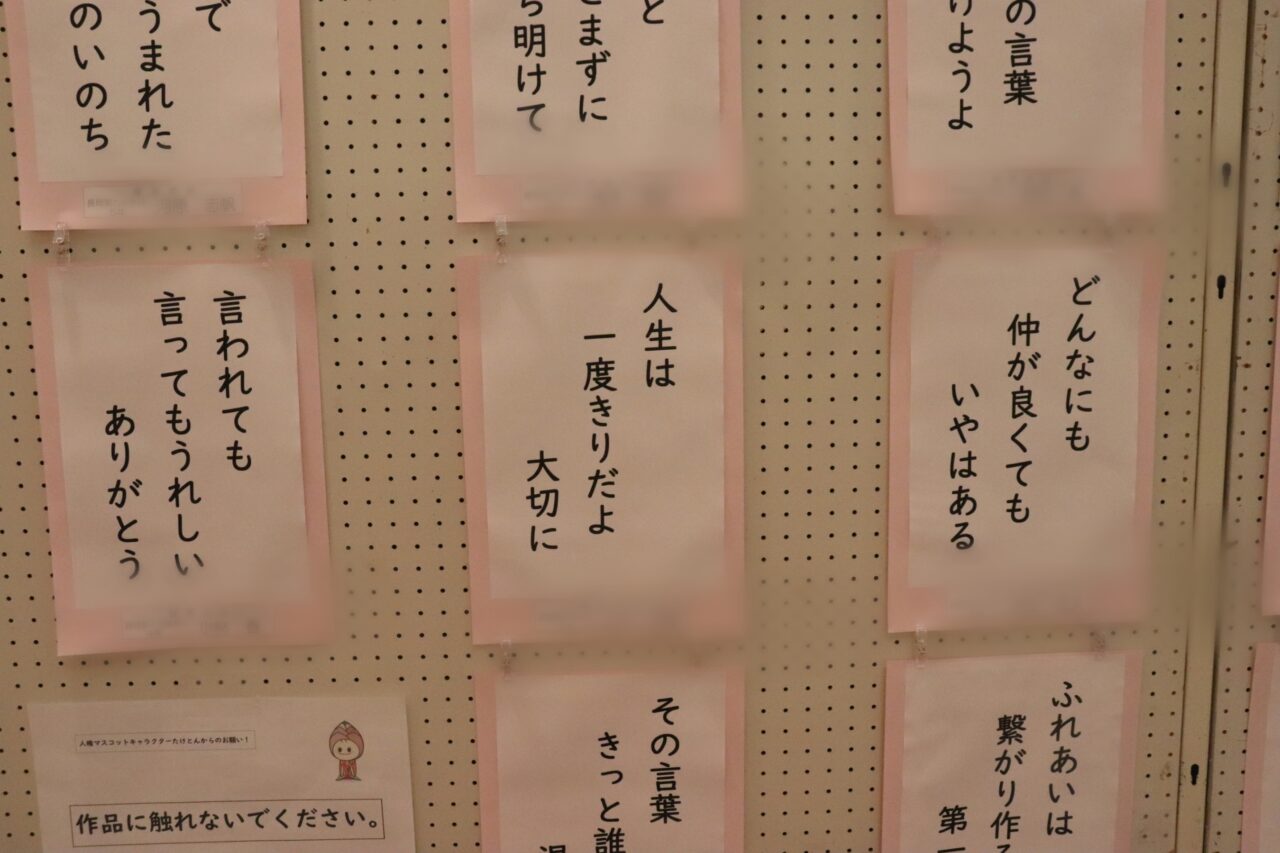 の言葉
けようよ
と
まずに
ち明けて
で
うまれた
のいのち
どんなにも
仲が良くても
いやはある
人生は
一度きりだよ
大切に
言われても
言ってもうれしい
ありがとう
ふれあいは
繋がり作る
第一
その言葉
きっと誰
人権マスコットキャラクターたけとんからのお願い！
作品に触れないでください。